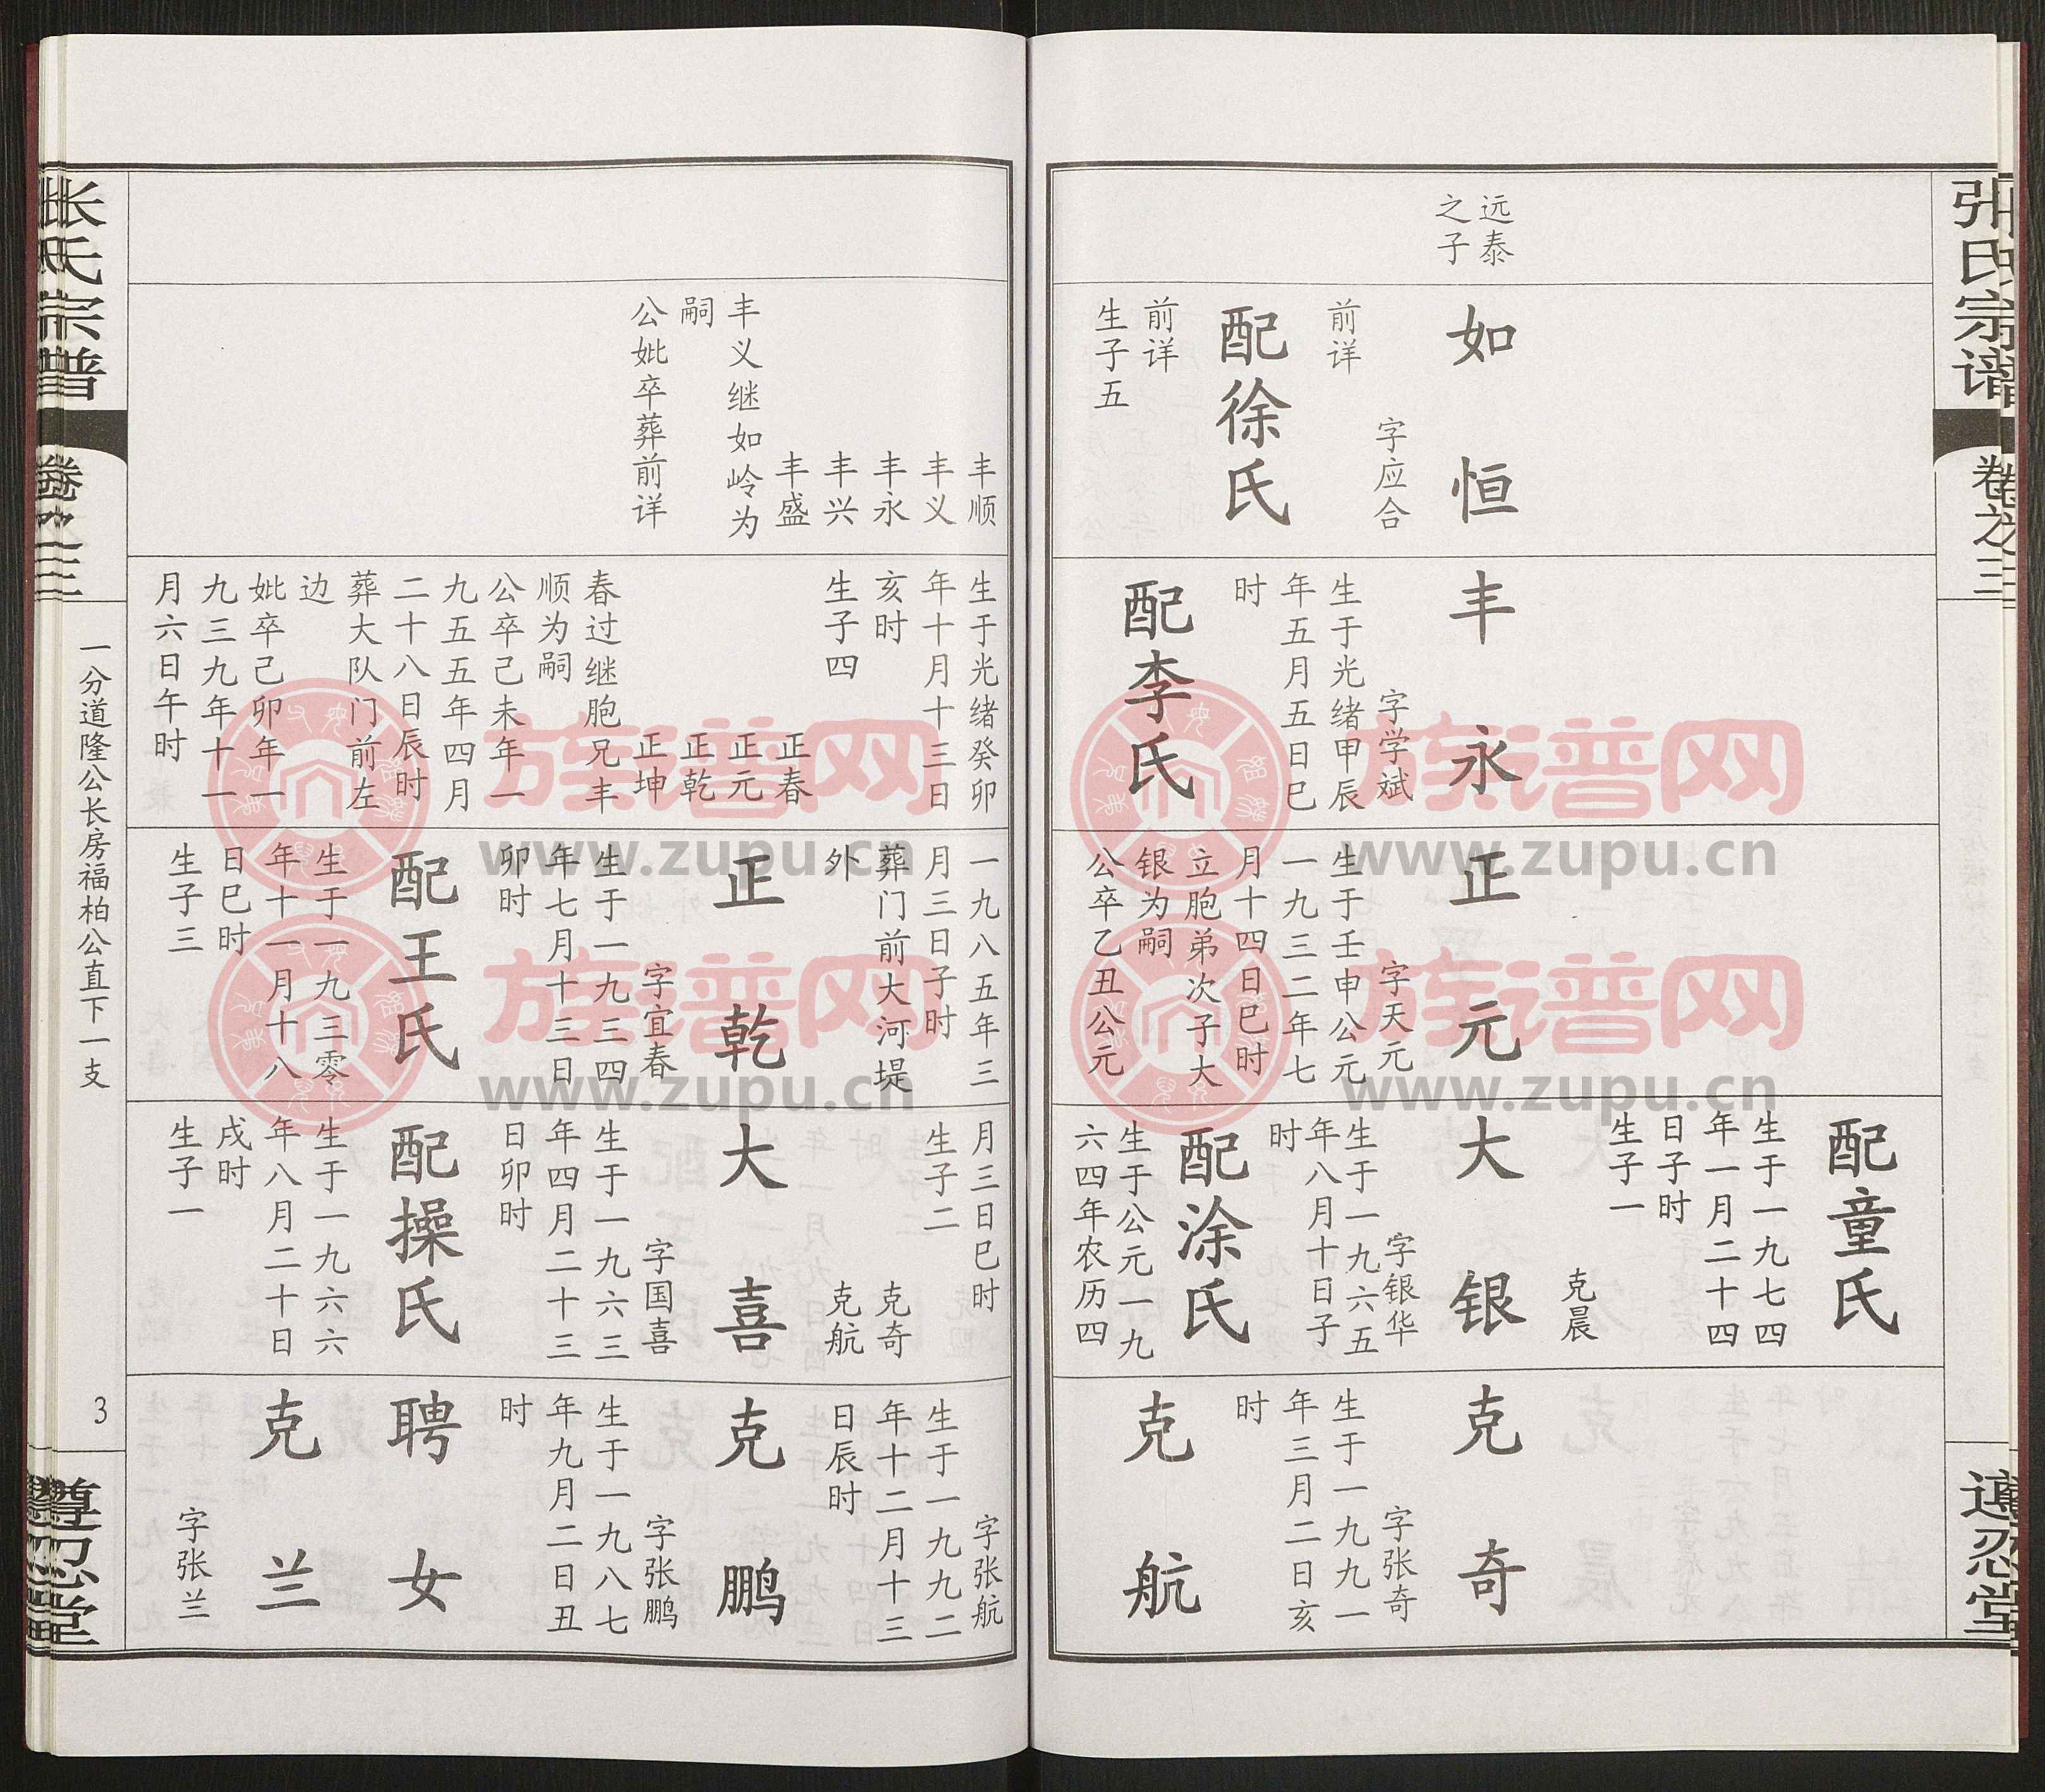 张氏宗谱
卷之三
远泰
之子
如恒
字应合
前详
配徐氏
前详
生子五
丰永
字学斌
生于光绪甲辰
年五月五日巳
时
配李氏
正元
字天元
生于壬申公元
一九三二年七
月十四日巳时
立胞弟次子大
银为嗣
公卒乙丑公元
配童氏
生于一九七四
年一月二十四
日子时
生子一
克晨
大银
字银华
生于一九六五
年八月十日子
时
配涂氏
生于公元一九
六四年农历四
克奇
字张奇
生于一九九一
年三月二日亥
时
克航
丰顺
丰义
丰永
丰兴
丰盛
丰义继如岭为
嗣
公妣卒葬前详
生于光绪癸卯
年十月十三日
亥时
生子四
正春
正元
正乾
正坤
春过继胞兄丰
顺为嗣
公卒己未年一
九五五年四月
二十八日辰时
葬大队门前左
边
妣卒己卯年一
九三九年十一
月六日午时
一九八五年三
月三日子时
葬门前大河堤
外
正乾
字宜春
生于一九三四
年七月十三日
卯时
配王氏
生于一九三零
年十一月十八
日巳时
生子三
月三日巳时
生子二
克奇
克航
大喜
字国喜
生于一九六三
年四月二十三
日卯时
配操氏
生于一九六六
年八月二十日
戌时
生子一
字张航
生于一九九二
年十二月十三
日辰时
克鹏
字张鹏
生于一九八七
年九月二日丑
时
聘女
克兰
字张兰
张氏宗谱
卷之三
一分道隆公长房福柏公直下一支
3
忍堂
忍堂
族谱网
www.zupu.cn
族谱网
www.zupu.cn
族谱网
www.zupu.cn
族谱网
www.zupu.cn